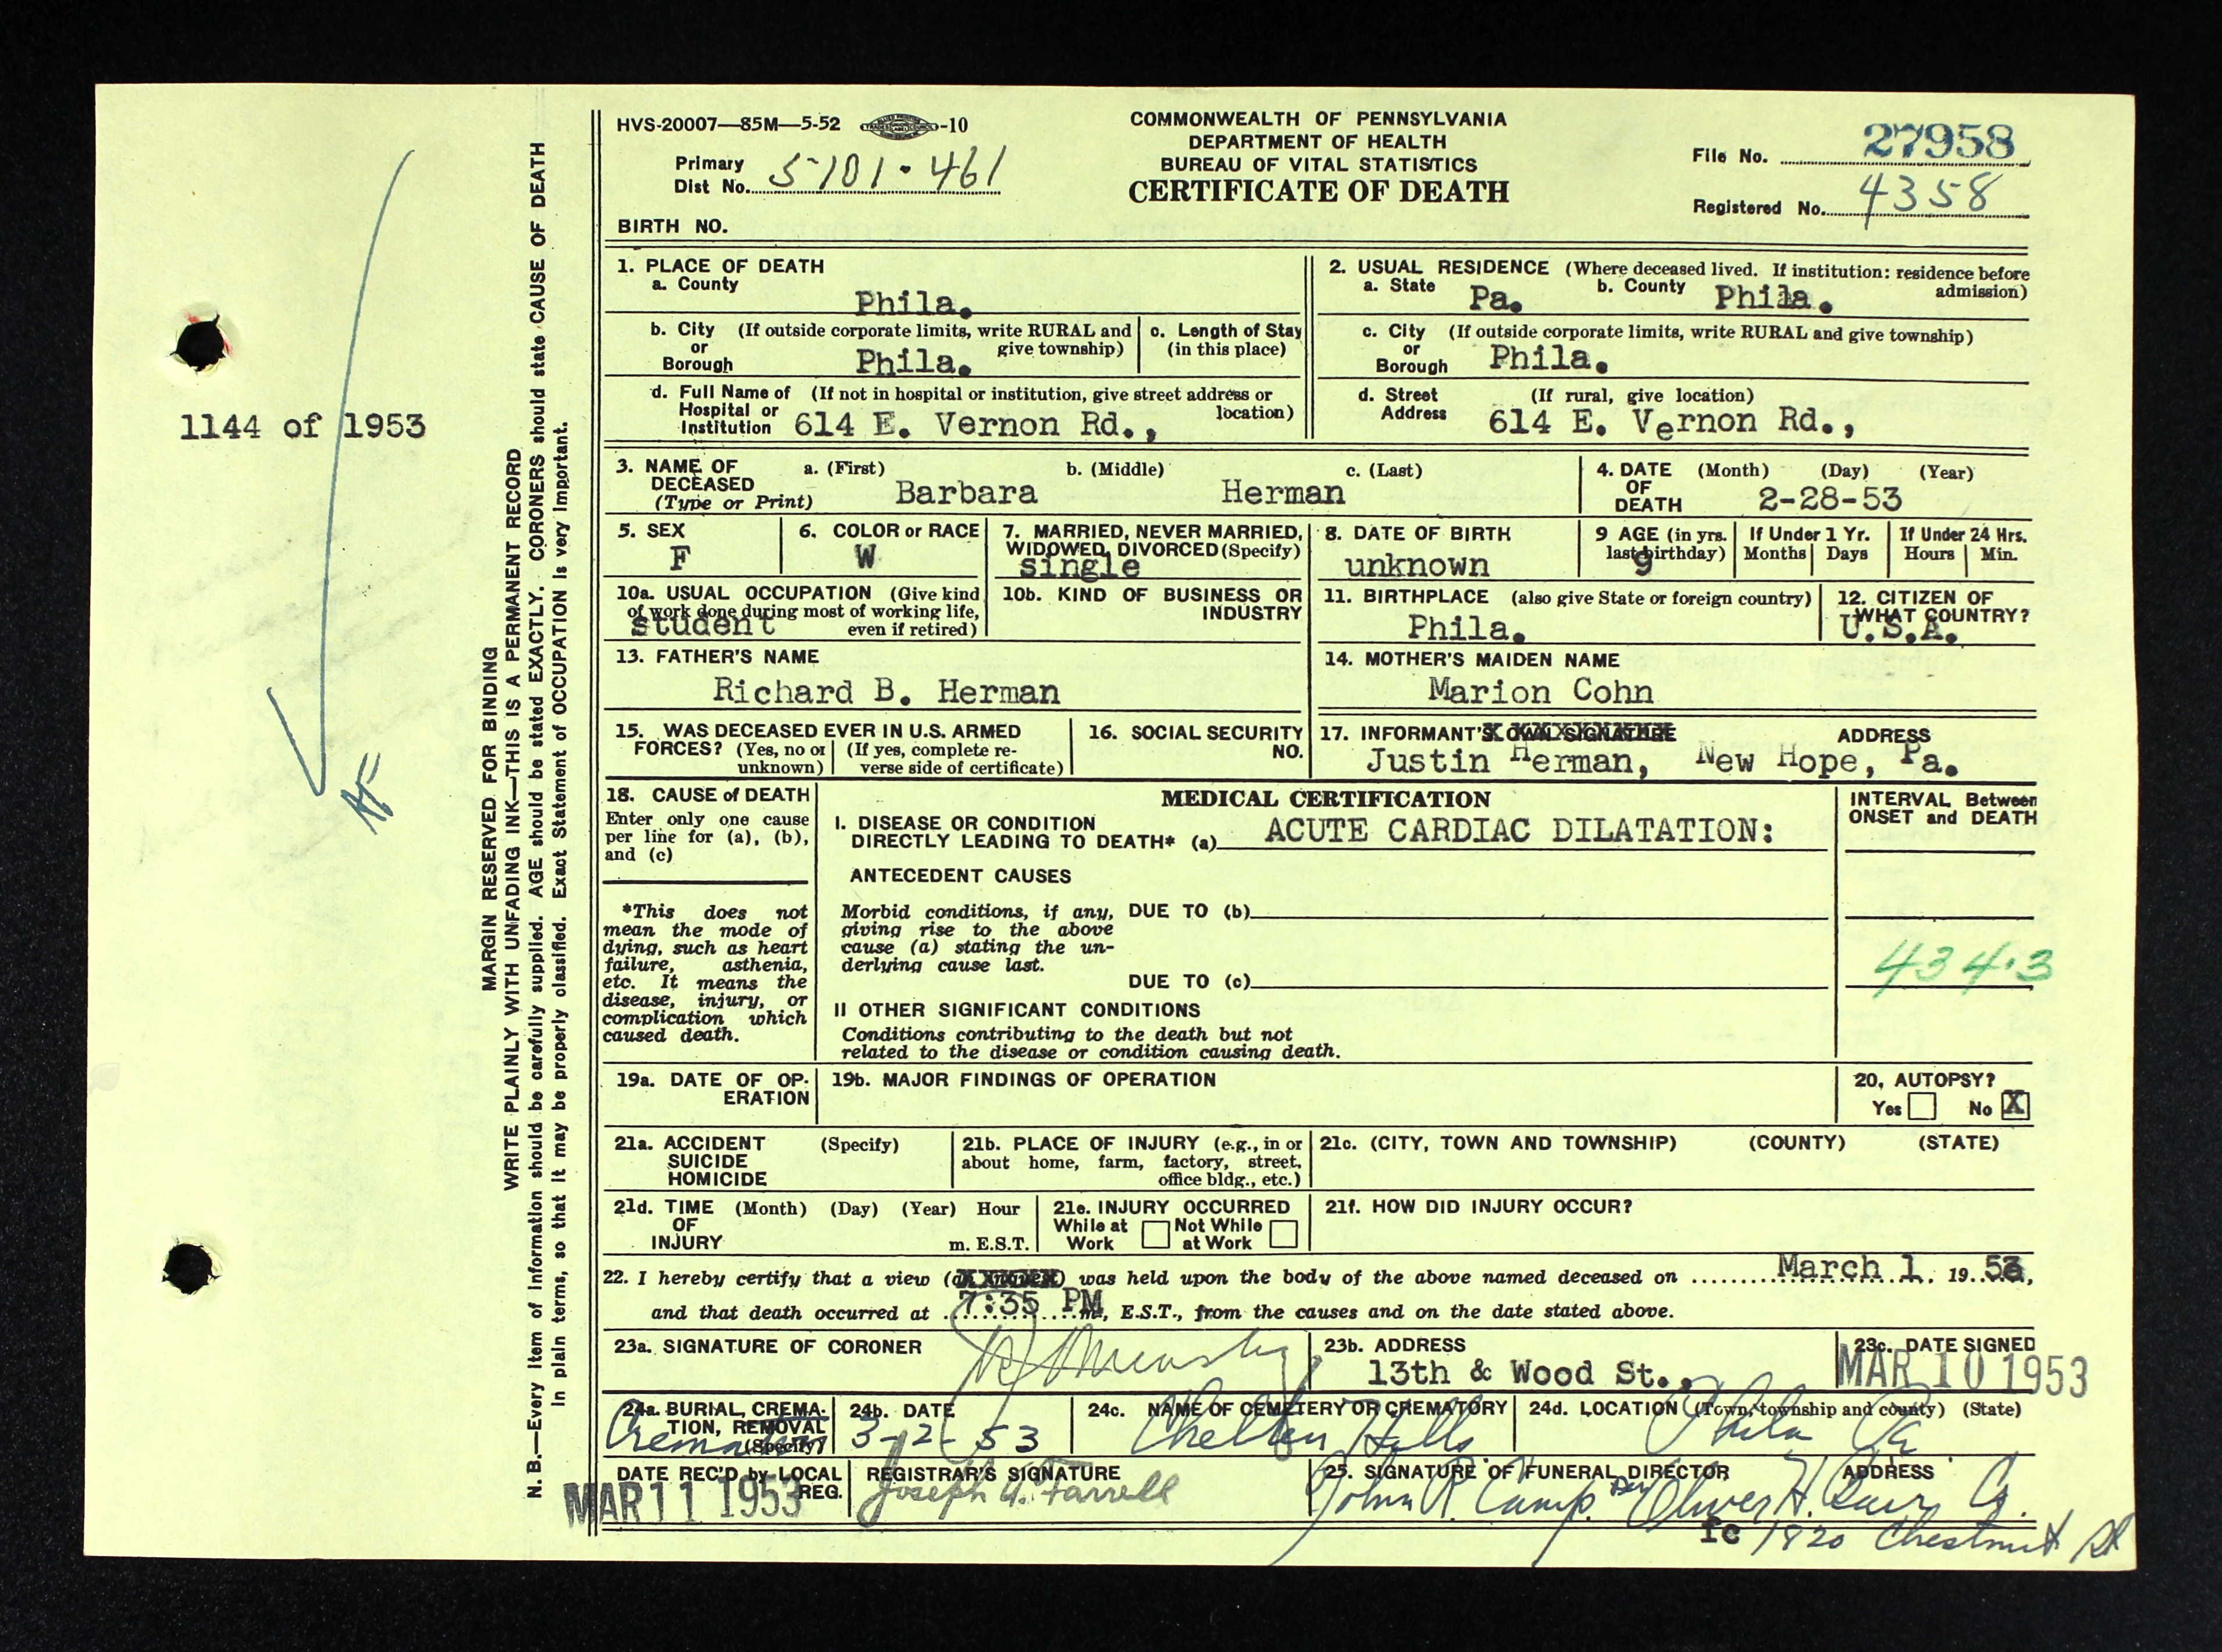 HVS-20007—85M—5-52 -10
COMMONWEALTH OF PENNSYLVANIA
DEPARTMENT OF HEALTH
BUREAU OF VITAL STATISTICS
CERTIFICATE OF DEATH
Primary
Dist No. 5101.461
File No. 27958
Registered No. 4358
BIRTH NO.
1. PLACE OF DEATH
a. County
Phila.
b. City (If outside corporate limits, write RURAL and
or give township)
Borough Phila.
c. Length of Stay
(in this place)
d. Full Name of (If not in hospital or institution, give street address or
Hospital or location)
Institution 614 E. Vernon Rd.,
2. USUAL RESIDENCE (Where deceased lived. If institution: residence before
a. State Pa. b. County Phila. admission)
c. City (If outside corporate limits, write RURAL and give township)
or
Borough Phila.
d. Street (If rural, give location)
Address 614 E. Vernon Rd.,
3. NAME OF a. (First) b. (Middle) c. (Last)
DECEASED Barbara Herman
(Type or Print)
4. DATE (Month) (Day) (Year)
OF
DEATH 2-28-53
5. SEX
F
6. COLOR or RACE
W
7. MARRIED, NEVER MARRIED,
WIDOWED, DIVORCED (Specify)
single
8. DATE OF BIRTH
unknown
9 AGE (in yrs.
last birthday)
9
If Under 1 Yr.
Months Days
If Under 24 Hrs.
Hours Min.
10a. USUAL OCCUPATION (Give kind
of work done during most of working life,
student even if retired)
10b. KIND OF BUSINESS OR
INDUSTRY
11. BIRTHPLACE (also give State or foreign country)
Phila.
12. CITIZEN OF
WHAT COUNTRY?
U.S.A.
13. FATHER'S NAME
Richard B. Herman
14. MOTHER'S MAIDEN NAME
Marion Cohn
15. WAS DECEASED EVER IN U.S. ARMED
FORCES? (Yes, no or (If yes, complete re-
unknown) verse side of certificate)
16. SOCIAL SECURITY
NO.
17. INFORMANT'S OWN SIGNATURE ADDRESS
Justin Herman, New Hope, Pa.
18. CAUSE of DEATH
Enter only one cause
per line for (a), (b),
and (c)
*This does not
mean the mode of
dying, such as heart
failure, asthenia,
etc. It means the
disease, injury, or
complication which
caused death.
MEDICAL CERTIFICATION
I. DISEASE OR CONDITION
DIRECTLY LEADING TO DEATH* (a) ACUTE CARDIAC DILATATION:
ANTECEDENT CAUSES
Morbid conditions, if any, DUE TO (b)
giving rise to the above
cause (a) stating the un-
derlying cause last.
DUE TO (c)
II OTHER SIGNIFICANT CONDITIONS
Conditions contributing to the death but not
related to the disease or condition causing death.
INTERVAL Between
ONSET and DEATH
434.3
19a. DATE OF OP-
ERATION
19b. MAJOR FINDINGS OF OPERATION
20, AUTOPSY?
Yes No X
21a. ACCIDENT (Specify)
SUICIDE
HOMICIDE
21b. PLACE OF INJURY (e.g., in or
about home, farm, factory, street,
office bldg., etc.)
21c. (CITY, TOWN AND TOWNSHIP) (COUNTY) (STATE)
21d. TIME (Month) (Day) (Year) Hour
OF
INJURY m. E.S.T.
21e. INJURY OCCURRED
While at Not While
Work at Work
21f. HOW DID INJURY OCCUR?
22. I hereby certify that a view was held upon the body of the above named deceased on March 1, 1953,
and that death occurred at 7:35 PM m, E.S.T., from the causes and on the date stated above.
23a. SIGNATURE OF CORONER
23b. ADDRESS
13th & Wood St.,
23c. DATE SIGNED
MAR 10 1953
24a. BURIAL, CREMA-
TION, REMOVAL
(Specify)
Cremation
24b. DATE
3-2-53
24c. NAME OF CEMETERY OR CREMATORY
Chelten Hills
24d. LOCATION (Town, township and county) (State)
Phila Pa
DATE REC'D by LOCAL
REG.
MAR 11 1953
REGISTRAR'S SIGNATURE
Joseph A. Farrell
25. SIGNATURE OF FUNERAL DIRECTOR ADDRESS
John R. Camp. Oliver H. Bair Co.
fc 1820 Chestnut St
1144 of 1953
MARGIN RESERVED FOR BINDING
WRITE PLAINLY WITH UNFADING INK—THIS IS A PERMANENT RECORD
N. B.—Every item of information should be carefully supplied. AGE should be stated EXACTLY. CORONERS should state CAUSE OF DEATH
in plain terms, so that it may be properly classified. Exact Statement of OCCUPATION is very important.